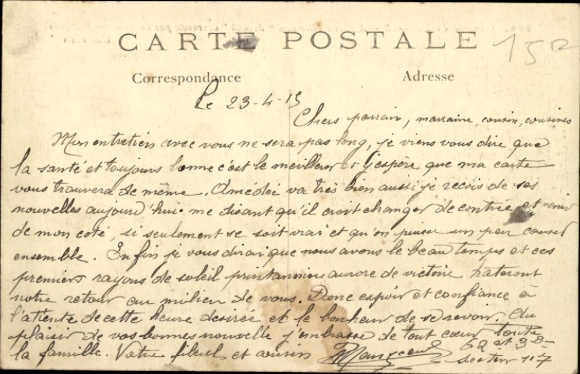 CARTE POSTALE
Correspondance
Adresse
le 23-4-15
Chers parrain, marraine, cousin, cousines
Mon entretien avec vous ne sera pas long, je viens vous dire que
la santé et toujours bonne c'est le meilleur et j'espère que ma carte
vous trouvera de même. Amedée va très bien aussi je reçois de ses
nouvelles aujourd'huie me disant qu'il croit changer de contrée et venir
de mon coté, si seulement se soit vrai et qu'on puisse un peu causer
ensemble. Enfin je vous dirai que nous avons le beau temps et ces
premiers rayons de soleil printannier aurore de victoire hateront
notre retour au milieu de vous. Donc espoir et confiance à
l'attente de cette heure desirée et le bonheur de se revoir. Au
plaisir de vos bonnes nouvelle j'embrasse de tout cœur toute
la famille. Votre filleul et cousin
secteur 117